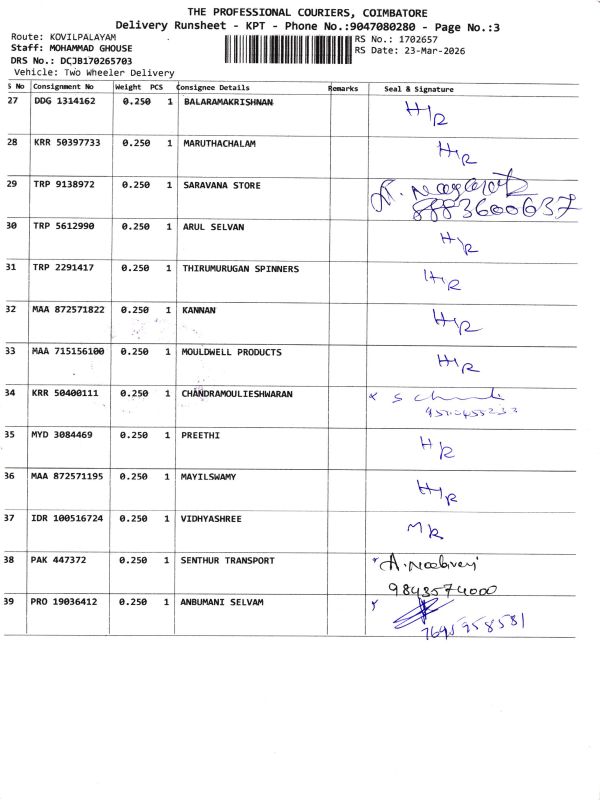 THE PROFESSIONAL COURIERS, COIMBATORE
Delivery Runsheet - KPT - Phone No.:9047080280 - Page No.:3
Route: KOVILPALAYAM
RS No.: 1702657
Staff: MOHAMMAD GHOUSE
RS Date: 23-Mar-2026
DRS No.: DCJB170265703
Vehicle: Two Wheeler Delivery
S No Consignment No Weight PCS Consignee Details Remarks Seal & Signature
27 DDG 1314162 0.250 1 BALARAMAKRISHNAN H/R
28 KRR 50397733 0.250 1 MARUTHACHALAM H/R
29 TRP 9138972 0.250 1 SARAVANA STORE
8883600637
30 TRP 5612990 0.250 1 ARUL SELVAN H/R
31 TRP 2291417 0.250 1 THIRUMURUGAN SPINNERS H/R
32 MAA 872571822 0.250 1 KANNAN H/R
33 MAA 715156100 0.250 1 MOULDWELL PRODUCTS H/R
34 KRR 50400111 0.250 1 CHANDRAMOULIESHWARAN
35 MYD 3084469 0.250 1 PREETHI H/R
36 MAA 872571195 0.250 1 MAYILSWAMY H/R
37 IDR 100516724 0.250 1 VIDHYASHREE M R
38 PAK 447372 0.250 1 SENTHUR TRANSPORT
9843574000
39 PRO 19036412 0.250 1 ANBUMANI SELVAM
7695958581